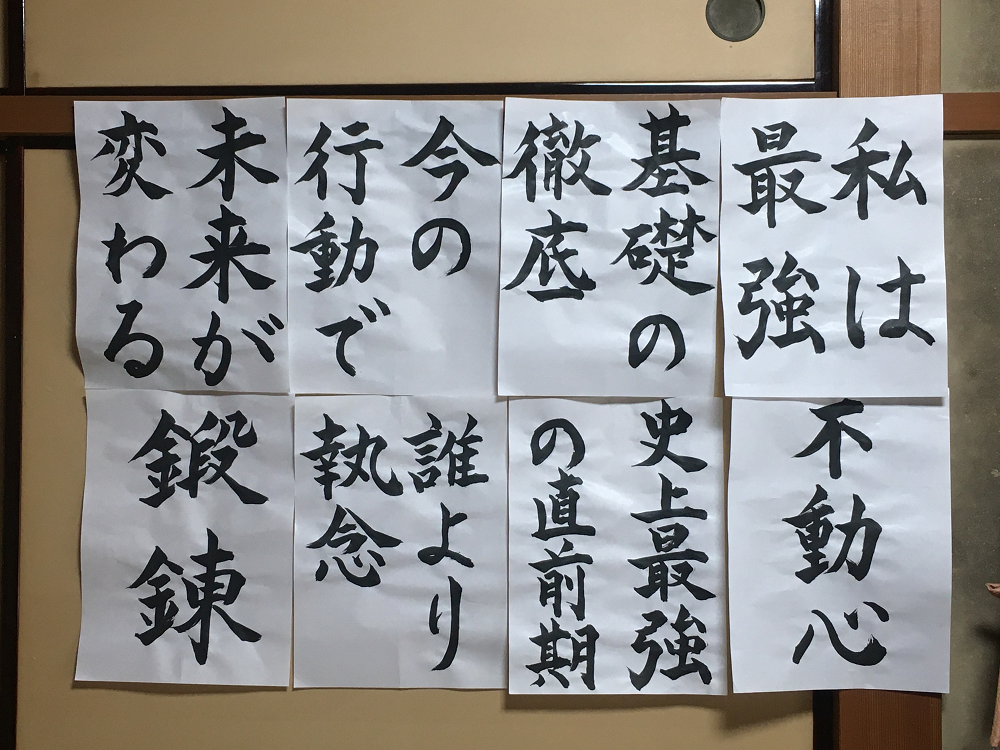 私は
最強
基礎の
徹底
今の
行動で
未来が
変わる
不動心
史上最強
の直前期
誰より
執念
鍛錬